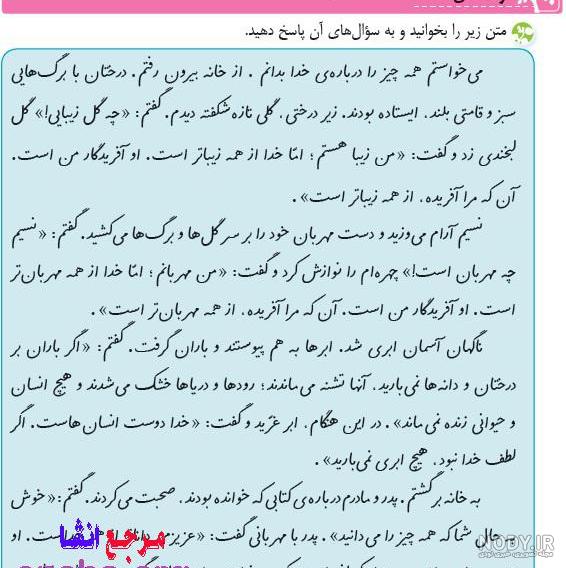 متن زیر را بخوانید و به سؤال‌های آن پاسخ دهید.
می‌خواستم همه چیز را درباره‌ی خدا بدانم . از خانه بیرون رفتم. درختان با برگ‌هایی
سبز و قامتی بلند، ایستاده بودند. زیر درختی، گلی تازه شکفته دیدم. گفتم: «چه گل زیبایی!» گل
لبخندی زد و گفت: «من زیبا هستم ؛ امّا خدا از همه زیباتر است. او آفریدگار من است.
آن که مرا آفریده، از همه زیباتر است» .
نسیم آرام می‌وزید و دست مهربان خود را بر سر گل‌ها و برگ‌ها می‌کشید. گفتم: «نسیم
چه مهربان است!» چهره‌ام را نوازش کرد و گفت: «من مهربانم ؛ امّا خدا از همه مهربان‌تر
است. او آفریدگار من است. آن که مرا آفریده، از همه مهربان‌تر است» .
ناگهان آسمان ابری شد. ابرها به هم پیوستند و باران گرفت. گفتم: «اگر باران بر
درختان و دانه‌ها نمی‌بارید، آنها تشنه می‌ماندند؛ رودها و دریاها خشک می‌شدند و هیچ انسان
و حیوانی زنده نمی‌ماند» . در این هنگام، ابر غرّید و گفت: «خدا دوست انسان‌هاست. اگر
لطف خدا نبود، هیچ ابری نمی‌بارید» .
به خانه برگشتم . پدر و مادرم درباره‌ی کتابی که خوانده بودند، صحبت می‌کردند. گفتم: «خوش
به حال شما که همه چیز را می‌دانید» . پدر با مهربانی گفت: «عزیزم، است. او
مرجع انشا
NODY.IR